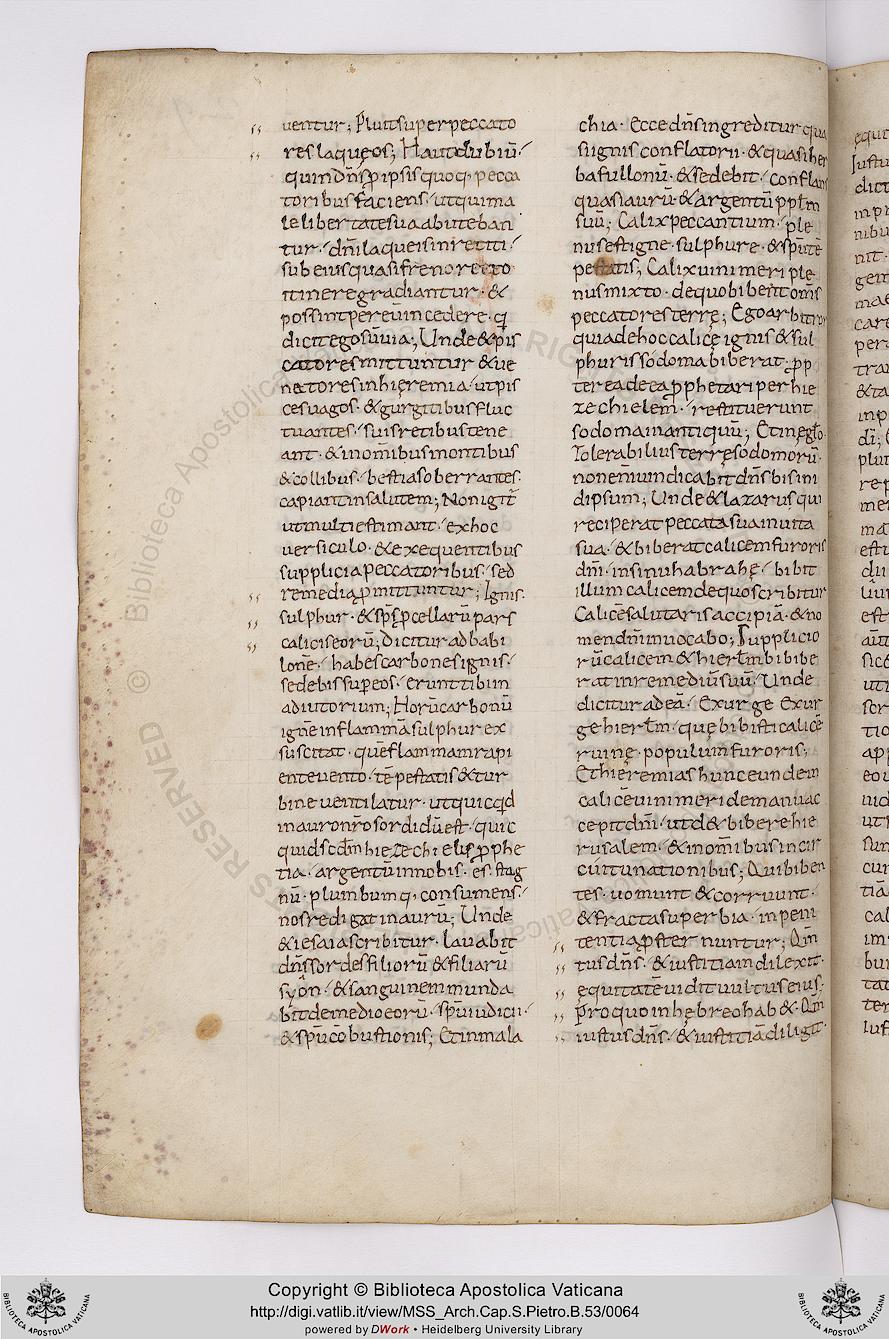 uentur; Pluitsuperpeccato
reslaqueos; Hautdubiū·
quindn̄sꝑipsisquoq· pecca
toribusfaciens· utquima
lelibertatesuaabuteban
tur· dn̄ilaqueisinretiti·
subeiusquasifrenorecto
itineregradiantur· &
possintpereūincedere· qi
dicitegosūuia; Unde&pis
catoresmittuntur &ue
natoresinhieremia· utpis
cesuagos· &gurgitibusfluc
tuantes· suisretibustene
ant· &inom̄ibusmontibus
&collibus· bestiasoberrantes·
capiantinsalutem; Nonigit̄
utmultiestimant· exhoc
uersiculo· &exequentibus
suppliciapeccatoribus· sed
remediaꝓmittuntur; Ignis·
sulphur· &sps̄ꝓcellarūpars
caliciseorū; Dicitur adbabi
lonē· habescarbonesignis·
sedebissuꝑeos· erunttibiin
adiutorium; Horūcarbonū
ignēinflammāsulphurex
suscitat· quēflammamrapi
enteuento· tēpestatis&tur
bineuentilatur· utquicqid
inauronr̄osordidūest· quic
quidscdm̄hiezechielisꝓphe
tia· argentūinnobis· es· stag
nū· plumbumq· consumens·
nosredigatinaurū; Unde
&iesaiascribitur· lauabit
dn̄ssordesfiliorū&filiarū
syon· &sanguinemmunda
bitdemedioeorū· spūiudicii·
&spūcōbustionis; Etinmala
chia· Eccedn̄singreditur qua
siignis conflatorii· &quasiher
bafullonū· &sedebit· conflans
quasiaurū&argentūpplm̄
suū; Calixpeccantium· ple
nusestigne· sulphure· &spūtē
pestatis; Calixuinimeri ple
nusmixto· dequobibentom̄s
peccatoresterre; Egoarbitror
quiadehoccalice ignis&sul
phurissodomabiberat· ꝓp
tereadeeaꝓphetariperhie
zechielem· restituerunt
sodomainantiquū; Etineglo·
Tolerabiliusterresodomorū·
nonenimuindicabitdn̄sbisini
dipsum; Unde&lazarusqui
reciperatpeccatasuainuita
sua· &biberatcalicemfuroris
dn̄i· insinuhabrahe· bibit
illumcalicemdequoscribitur
Calicēsalutarisaccipiā· &no
mendn̄iinuocabo; Supplicio
rūcalicem&hierlm̄bibibe
ratinremediūsuū· Unde
dicituradeā· Exurge Exur
gehierlm̄· quebibisticalicē
ruine· populumfuroris;
Ethieremiashunceundem
calicēuinimeridemanuac
cepitdn̄i· utd&biberehie
rusalem· &inom̄ibusincir
cuitunationibus; Quibiben
tes· uomunt &corruunt·
&fractasuperbia· inpeni
tentiaꝓsternuntur; Qm̄
iustusdn̄s· &iustitiamdilexit·
equitatēuidituultuseius·
Proquoinhebreohab&· Qm̄
iustusdn̄s· &iustitiādiligit·
Copyright © Biblioteca Apostolica Vaticana
http://digi.vatlib.it/view/MSS_Arch.Cap.S.Pietro.B.53/0064
powered by DWork • Heidelberg University Library